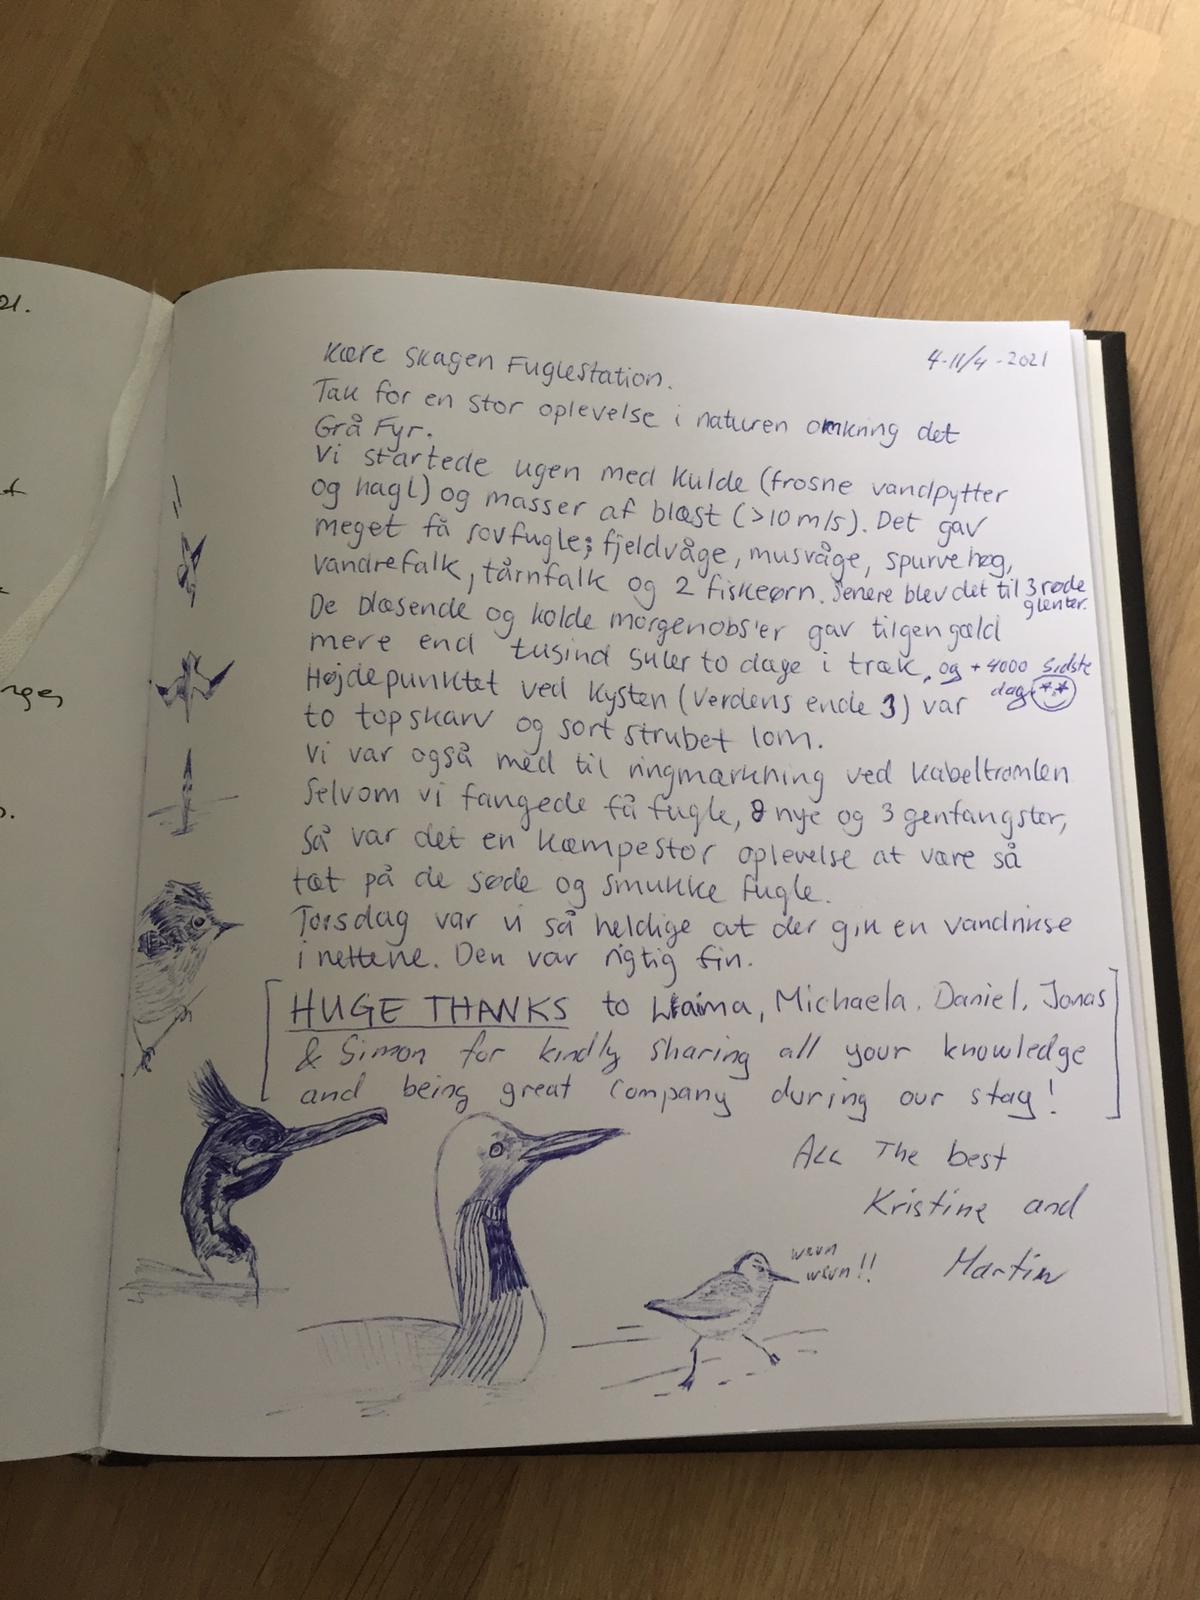 21.
nges
Kære Skagen Fuglestation.
4-11/4-2021
Tak for en stor oplevelse i naturen omkring det
Grå Fyr.
Vi startede ugen med kulde (frosne vandpytter
og hagl) og masser af blæst (>10 m/s). Det gav
meget få rovfugle; fjeldvåge, musvåge, spurvehøg,
vandrefalk, tårnfalk og 2 fiskeørn. Senere blev det til 3 røde
glenter.
De blæsende og kolde morgenobs'er gav tilgengæld
mere end tusind suler to dage i træk, og +4000 sidste
dag
Højdepunktet ved kysten (Verdens ende 3) var
to topskarv og sortstrubet lom.
Vi var også med til ringmærkning ved Kabeltromlen
Selvom vi fangede få fugle, 8 nye og 3 genfangster,
så var det en kæmpestor oplevelse at være så
tæt på de søde og smukke fugle.
Torsdag var vi så heldige at der gik en vandrikse
i nettene. Den var rigtig fin.
[HUGE THANKS to Laima, Michaela, Daniel, Jonas
& Simon for kindly sharing all your knowledge
and being great company during our stay!]
All The best
Kristine and
Martin